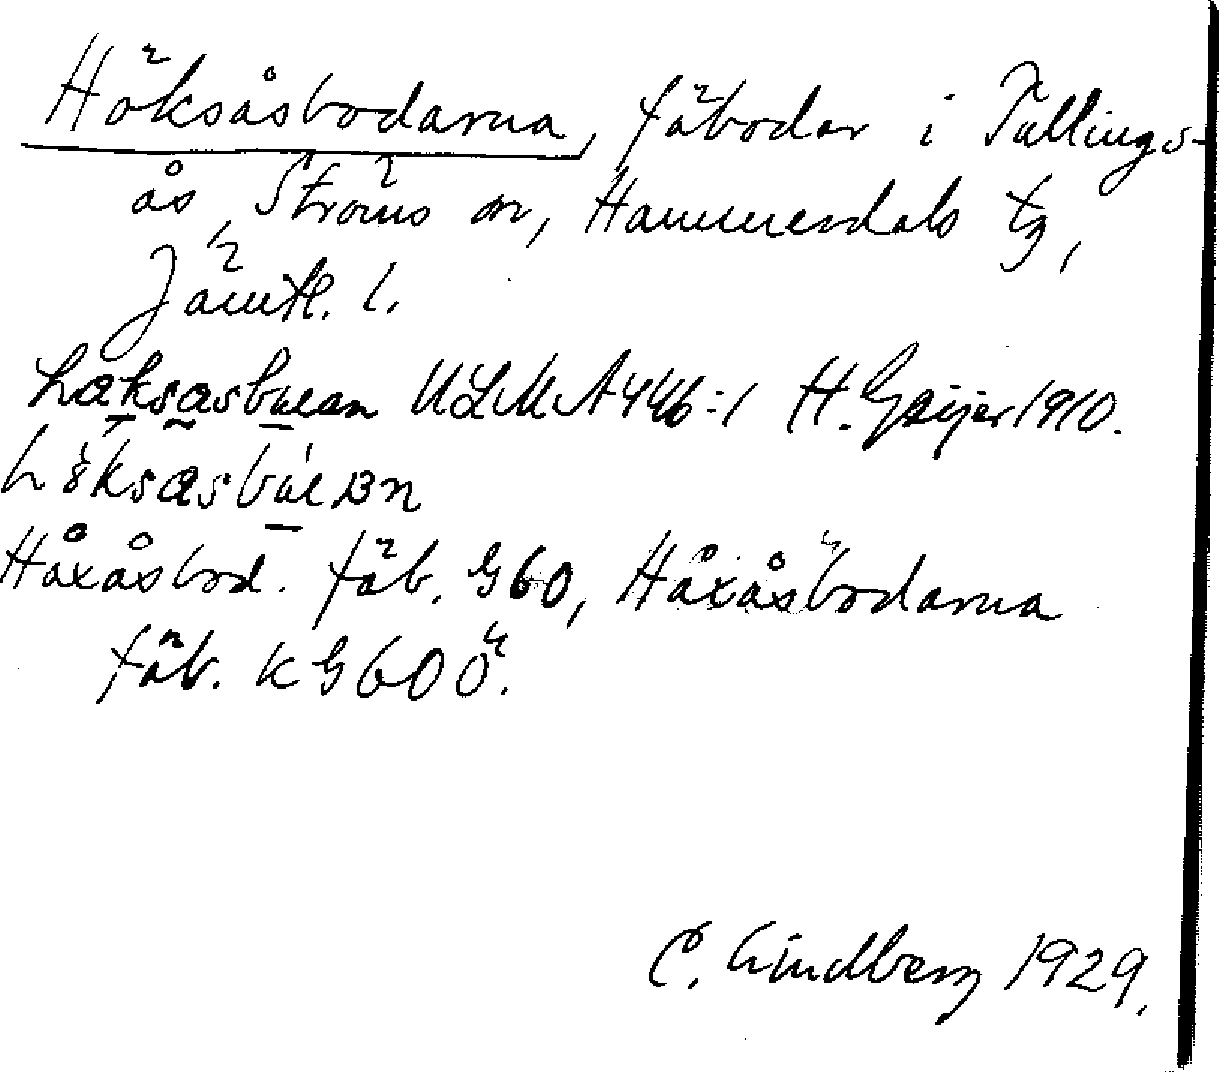 Höksåsbodarna, fäbodar i Tullings-
ås, Ströms sn, Hammerdals tg,
Jämtl. l.
ULMA 446:1 H. Geijer 1910.
Håxåsbod. fäb. G60, Håxåsbodarna
fäb. KG60Ö.
C. Lindberg 1929.